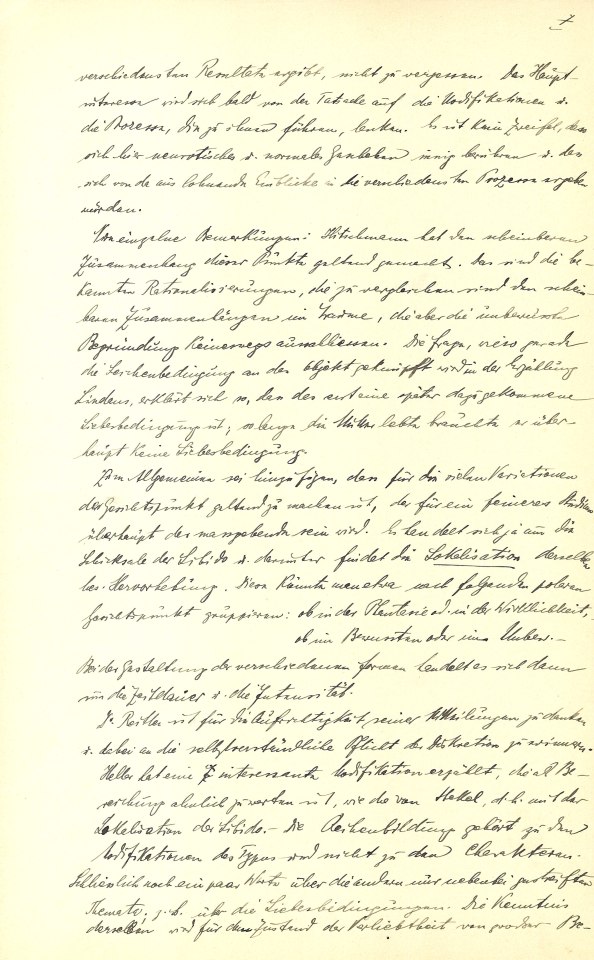 7
verschiedensten Resultate ergibt, nicht zu vergessen. Das Haupt-
interesse wird sich bald von der Tatsache auf die Modifikationen u.
die Prozesse, die zu ihnen führen, lenken. Es ist kein Zweifel, dass
sich hier neurotisches u. normales Seelenleben innig berühren u. dass
sich von da aus lohnende Einblicke in die verschiedensten Prozesse ergeben
würden.
einzelne Bemerkungen: Hitschmann hat den scheinbaren
Zusammenhang dieser Punkte geltend gemacht. Das sind die be-
kannten Rationalisierungen, die zu vergleichen sind den schein-
baren Zusammenhängen im Traume, die aber die unbewusste
Begründung keineswegs ausschliessen. Die Frage, wieso gerade
die Leichenbedingung an das Objekt geknüpft wird in der Erzählung
Lindens, erklärt sich so, dass das erst eine später dazugekommene
Liebesbedingung ist; solange die Mutter lebte brauchte er über-
haupt keine Liebesbedingung.
Zum Allgemeinen sei hinzufügen, dass für die vielen Variationen
der Gesichtspunkt geltend zu machen ist, der für ein feineres Studium
überhaupt der massgebende sein wird. Es handelt sich ja um die
Schicksale der Libido u. darunter findet die Lokalisation derselben
bes. Hervorhebung. Diese könnte man etwa nach folgenden polaren
Gesichtspunkt gruppieren: ob in der Phantasie od. in der Wirklichkeit,
ob im Bewussten oder im Unbew.–
Bei der Gestaltung der verschiedenen Formen handelt es sich dann
um die Zeitdauer u. die Intensität.
Dr. Reitler ist für die Aufrichtigkeit seiner Mitteilungen zu danken
u. dabei an die selbstverständliche Pflicht der Diskretion zu erinnern.
Heller hat eine interessante Modifikation erzählt, die als Be-
reicherung ähnlich zu werten ist, wie die von Stekel, d.h. mit der
Lokalisation der Libido.– Die Reihenbildung gehört zu den
Modifikationen des Typus und nicht zu den Charakteren.
Schliesslich noch ein paar Worte über die andern nur nebenbei gestreiften
Themata, z.b. über die Liebesbedingungen. Die Kenntnis
derselben wird für den Zustand der Verliebtheit von grosser Be-